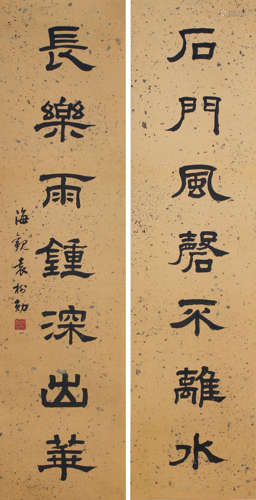 石門風磬不離水
長樂雨鍾深出華
海觀袁樹勛